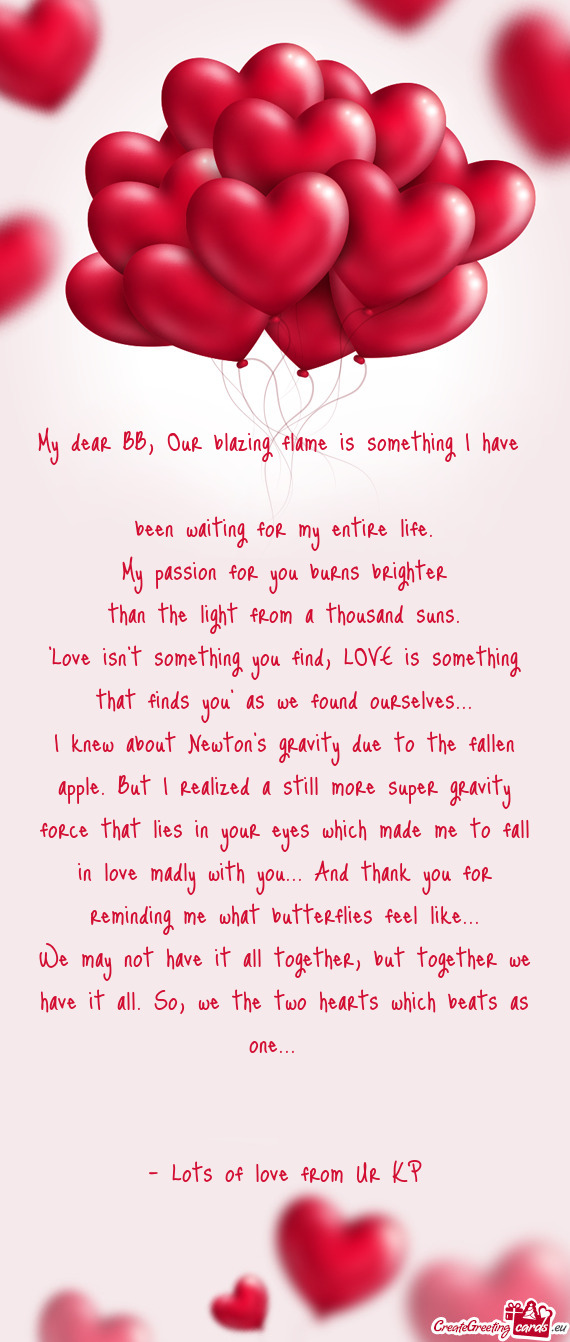 My dear BB, Our blazing flame is something I have
been waiting for my entire life.
My passion for you burns brighter
than the light from a thousand suns.
"Love isn't something you find, LOVE is something
that finds you" as we found ourselves...
I knew about Newton's gravity due to the fallen
apple. But I realized a still more super gravity
force that lies in your eyes which made me to fall
in love madly with you... And thank you for
reminding me what butterflies feel like...
We may not have it all together, but together we
have it all. So, we the two hearts which beats as
one...
- Lots of love from Ur KP
CreateGreetingcards.eu